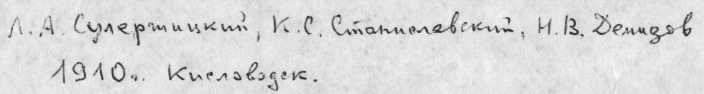 Л. А. Сулержицкий, К. С. Станиславский, Н. В. Демидов
1910 г. Кисловодск.